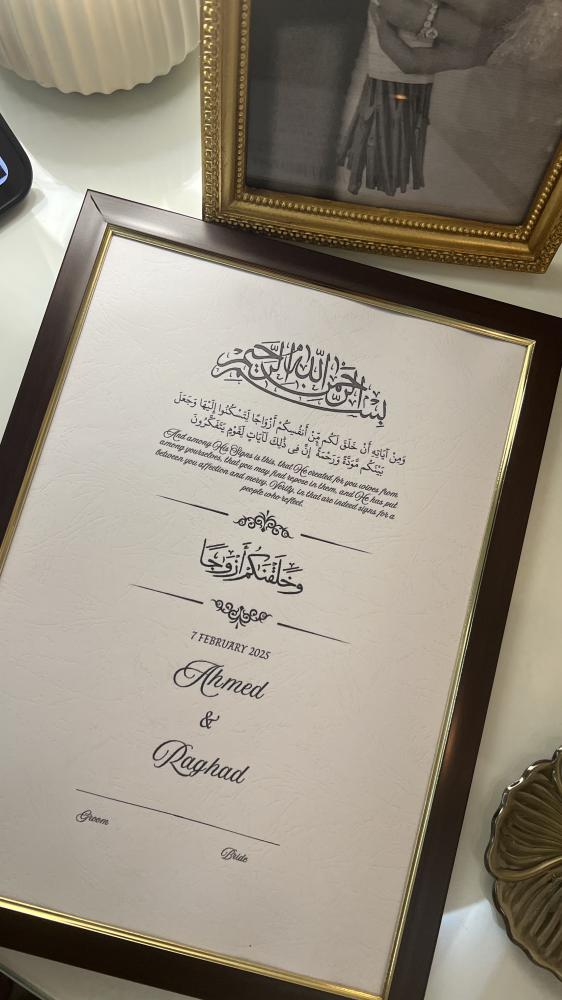 بسم الله الرحمن الرحيم
وَمِنْ آيَاتِهِ أَنْ خَلَقَ لَكُم مِّنْ أَنفُسِكُمْ أَزْوَاجًا لِّتَسْكُنُوا إِلَيْهَا وَجَعَلَ
بَيْنَكُم مَّوَدَّةً وَرَحْمَةً إِنَّ فِي ذَٰلِكَ لَآيَاتٍ لِّقَوْمٍ يَتَفَكَّرُونَ
And among His Signs is this, that He created for you wives from
among yourselves, that you may find repose in them, and He has put
between you affection and mercy. Verily, in that are indeed signs for a
people who reflect.
وَخَلَقْنَٰكُمْ أَزْوَٰجًا
7 FEBRUARY 2025
Ahmed
&
Raghad
Groom
Bride